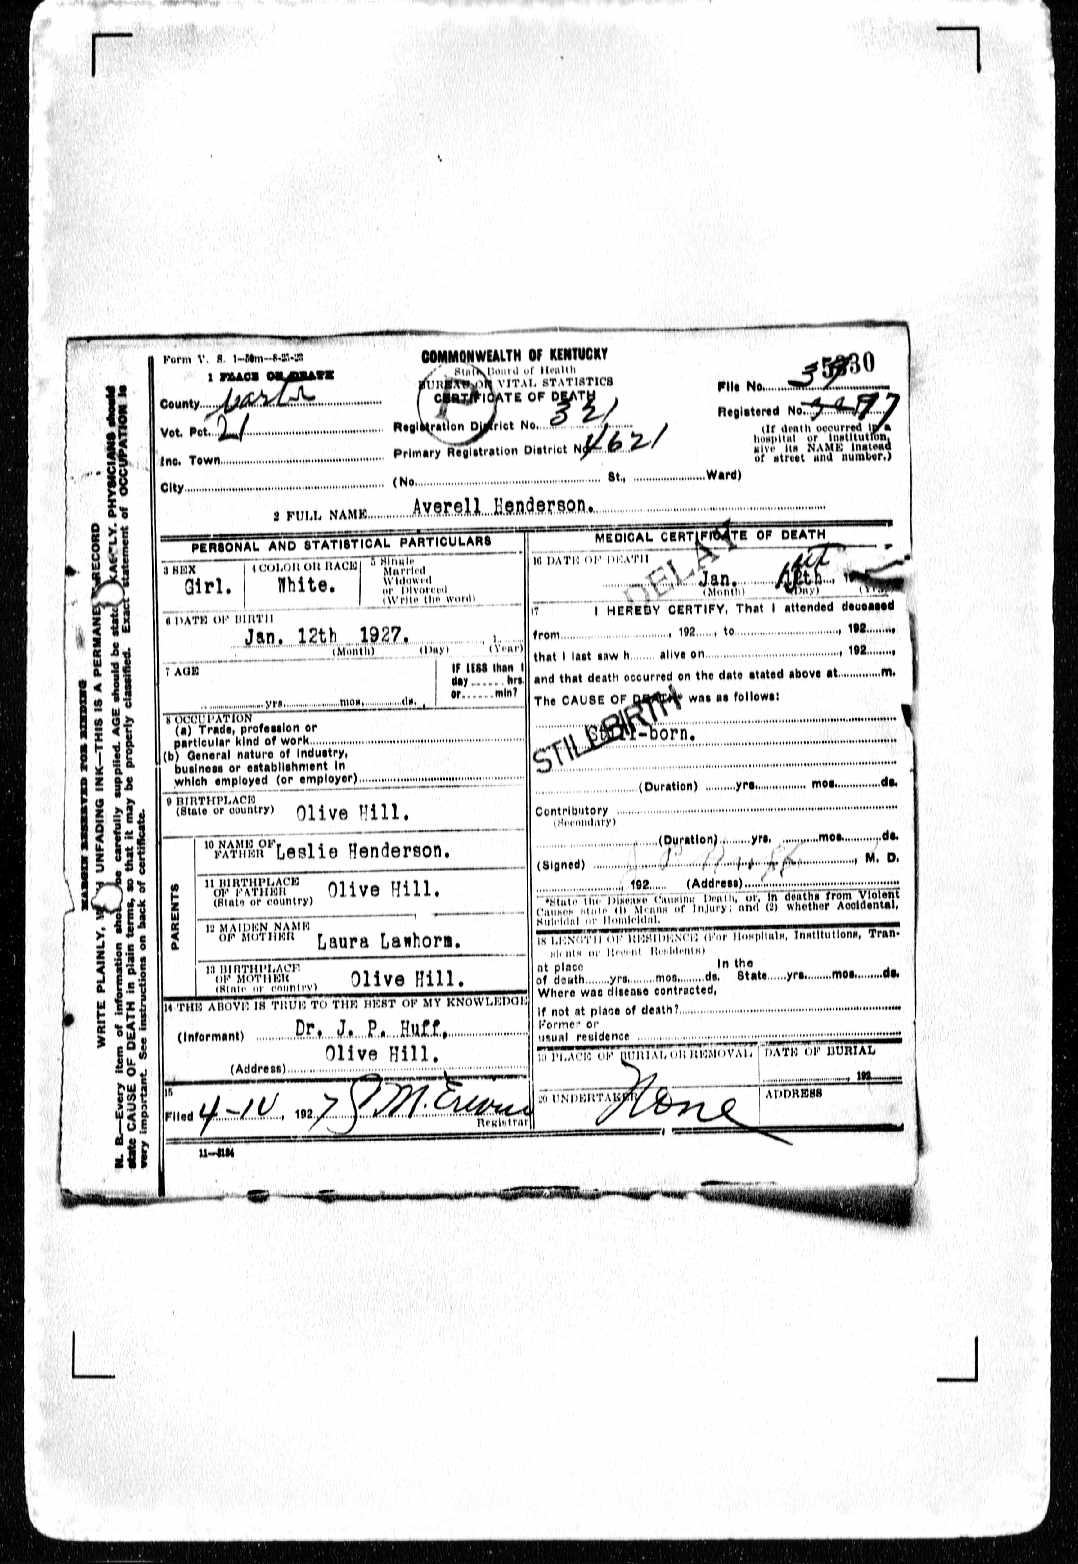 Form V. S. 1-50m-8-21-22
COMMONWEALTH OF KENTUCKY
State Board of Health
BUREAU OF VITAL STATISTICS
CERTIFICATE OF DEATH
1 PLACE OF DEATH
County Carter
Vot. Pct. 21
Inc. Town
City
Registration District No. 321
Primary Registration District No. 4621
(No. St., Ward)
File No. 5330
Registered No.
(If death occurred in a
hospital or institution,
give its NAME instead
of street and number.)
2 FULL NAME Averell Henderson.
PERSONAL AND STATISTICAL PARTICULARS
3 SEX
Girl.
4 COLOR OR RACE
White.
5 Single
Married
Widowed
or Divorced
(Write the word)
6 DATE OF BIRTH
Jan. 12th 1927.
(Month) (Day) (Year)
7 AGE
yrs. mos. ds.
IF LESS than 1
day hrs.
or min?
8 OCCUPATION
(a) Trade, profession or
particular kind of work
(b) General nature of industry,
business or establishment in
which employed (or employer)
9 BIRTHPLACE
(State or country) Olive Hill.
PARENTS
10 NAME OF
FATHER Leslie Henderson.
11 BIRTHPLACE
OF FATHER
(State or country) Olive Hill.
12 MAIDEN NAME
OF MOTHER Laura Lawhorn.
13 BIRTHPLACE
OF MOTHER
(State or country) Olive Hill.
14 THE ABOVE IS TRUE TO THE BEST OF MY KNOWLEDGE
(Informant) Dr. J. P. Huff,
Olive Hill.
(Address)
15
Filed 4-10, 1927
Registrar
11-3184
MEDICAL CERTIFICATE OF DEATH
DELAY
16 DATE OF DEATH
Jan. 12th
(Month) (Day) (Year)
17 I HEREBY CERTIFY, That I attended deceased
from , 192 , to , 192 ,
that I last saw h alive on , 192 ,
and that death occurred on the date stated above at m.
The CAUSE OF DEATH* was as follows:
STILLBIRTH
Still-born.
(Duration) yrs. mos. ds.
Contributory
(Secondary)
(Duration) yrs. mos. ds.
(Signed) J P Huff , M. D.
, 192 (Address)
*State the Disease Causing Death, or, in deaths from Violent
Causes state (1) Means of Injury; and (2) whether Accidental,
Suicidal or Homicidal.
18 LENGTH OF RESIDENCE (For Hospitals, Institutions, Tran-
sients or Recent Residents)
at place In the
of death yrs. mos. ds. State yrs. mos. ds.
Where was disease contracted,
If not at place of death?
Former or
usual residence
19 PLACE OF BURIAL OR REMOVAL
DATE OF BURIAL
, 192
20 UNDERTAKER
None
ADDRESS
MARGIN RESERVED FOR BINDING
WRITE PLAINLY, WITH UNFADING INK—THIS IS A PERMANENT RECORD
N. B.—Every item of information should be carefully supplied. AGE should be stated EXACTLY. PHYSICIANS should
state CAUSE OF DEATH in plain terms, so that it may be properly classified. Exact statement of OCCUPATION is
very important. See instructions on back of certificate.